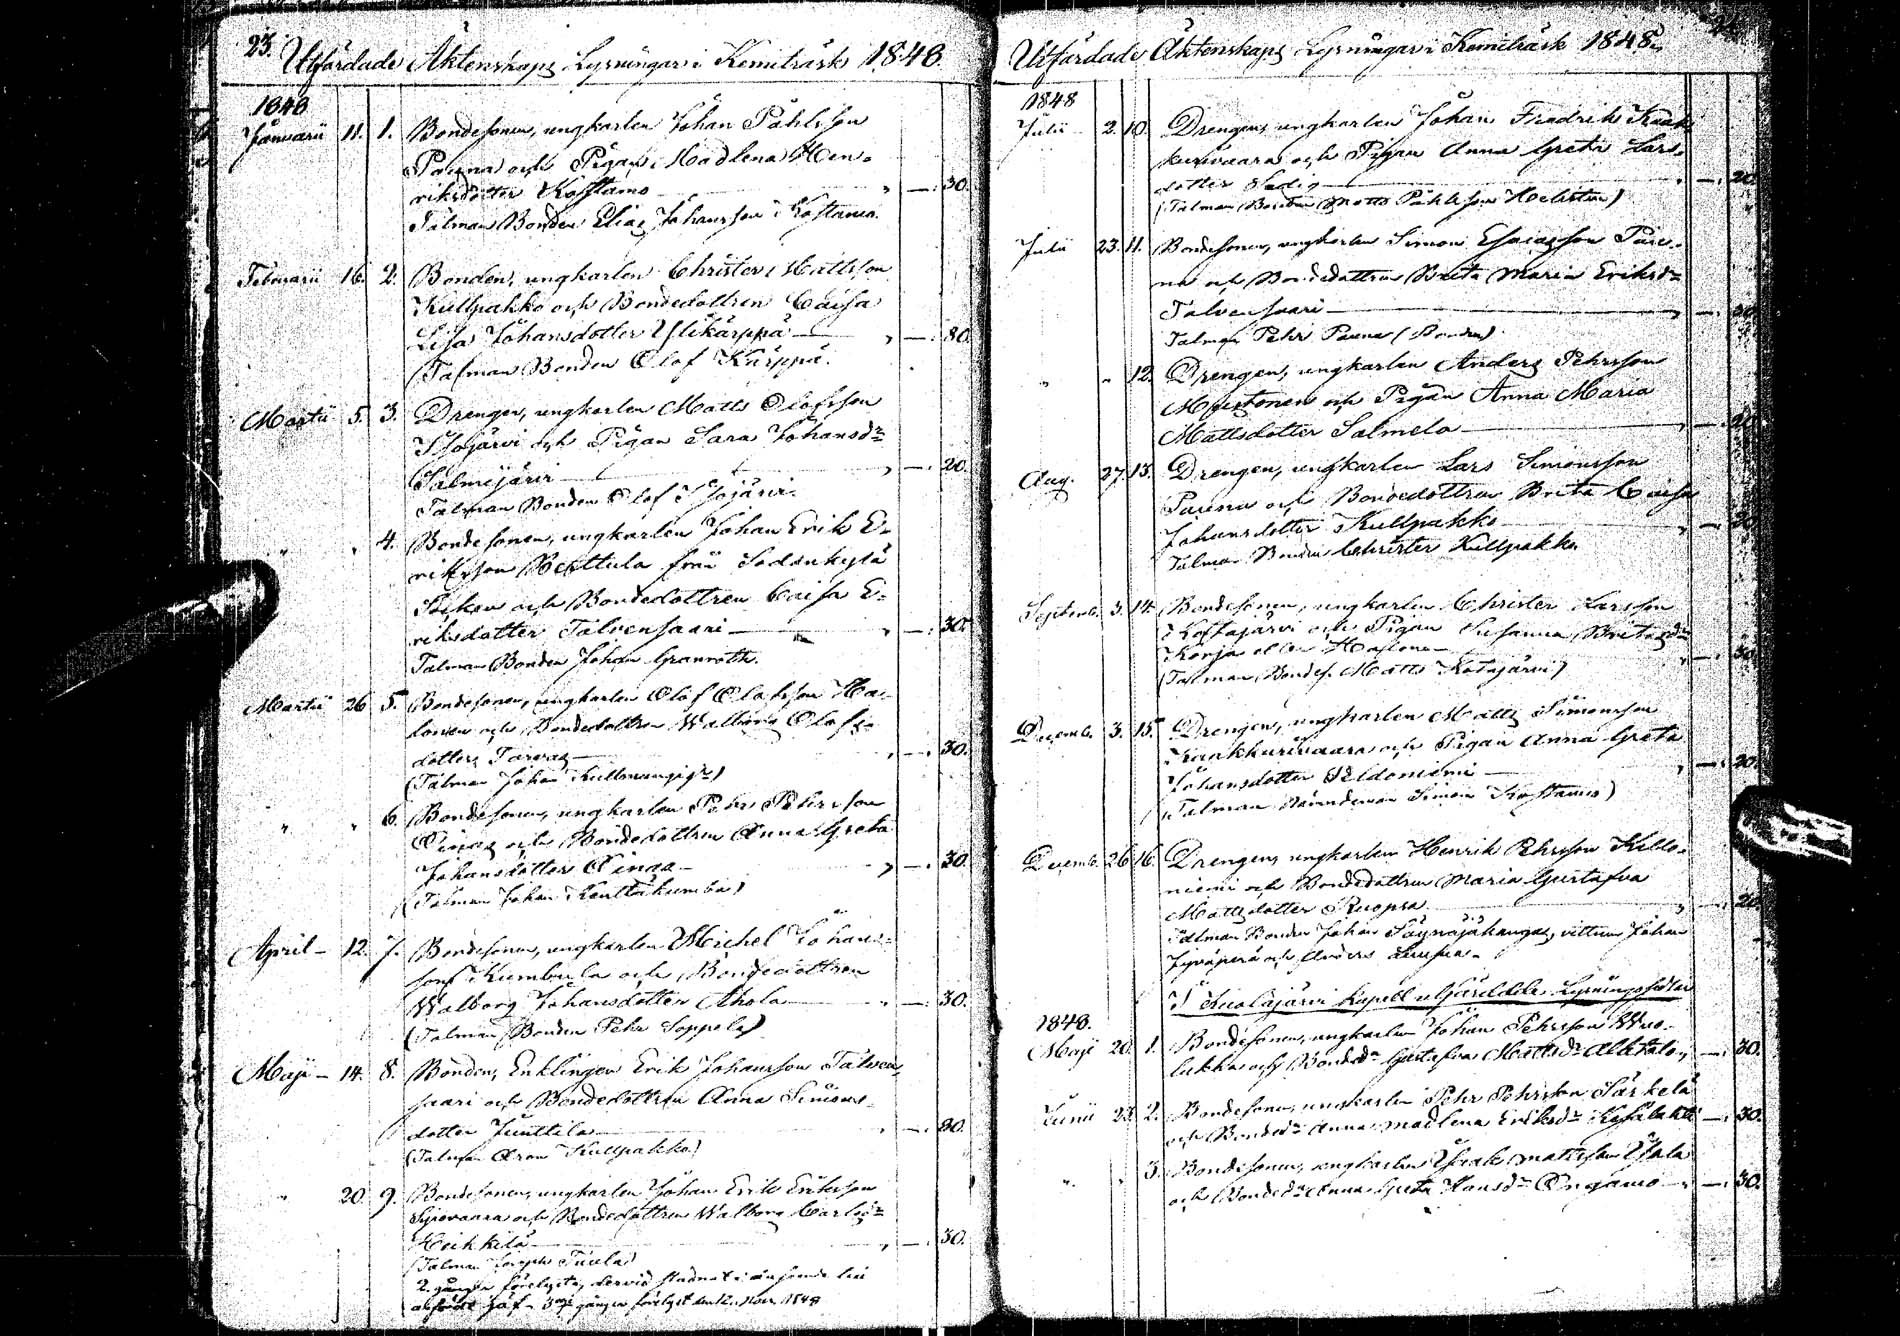 23.
Utfärdade Äktenskaps Lysningar i Kemiträsk 1848.
1848
Januarii 11. 1. Bondesonen, ungkarlen Johan Påhlsson
Pauna och Pigan Madlena Hen-
riksdotter Kostamo " — 30.
Talman Bonden Elias Johansson Kostamo.
Februarii 16. 2. Bonden, ungkarlen Christer Mattsson
Kullpakko och Bondedottren Caisa
Lisa Johansdotter Ylikärppä " — 30.
(Talman Bonden Olof Kärppä.
Martii 5. 3. Drengen, ungkarlen Matts Olofsson
Isojärvi och Pigan Sara Johansdr
Salmijärvi " — 20.
Talman Bonden Olof Isojärvi.
" " 4. Bondesonen, ungkarlen Johan Erik E-
riksson Perttula från Sodankylä
Socken och Bondedottren Caisa E-
riksdotter Talvensaari " — 30.
Talman Bonden Johan Granroth.
Martii 26 5. Bondesonen, ungkarlen Olof Olofsson Ha-
lonen och Bondedottren Walborg Olofs-
dotter Tarvas " — 30.
(Talman Johan
" " 6. Bondesonen, ungkarlen Pehr Pehrsson
Oinas och Bondedottren Anna Greta
Johansdotter Oinas " — 30.
(Talman Johan Kenttäkumbu)
April 12. 7. Bondesonen, ungkarlen Michel Johans-
son Kumbula och Bondedottren
Walborg Johansdotter Ahola " — 30.
(Talman Bonden Pehr Soppela)
Maji 14. 8. Bonden, Enklingen Erik Johansson Talven-
saari och Bondedottren Anna Simons-
dotter Junttila " — 30.
(Talman Aron Kullpakko)
" 20. 9. Bondesonen, ungkarlen Johan Erik Eriksson
Syvovaara och Bondedottren Walborg Carlsdr
Heikkilä " — 30.
(Talman Joseph Tuula)
2. gånger förelyst, dervid stadnat i anseende till
anfördt jäf. 3dje gången förelyst den 12. Nov. 1848
Utfärdade Äktenskaps Lysningar i Kemiträsk 1848.
1848
Julii 2. 10. Drengen, ungkarlen Johan Fredrik Kaak-
kurivaara och Pigan Anna Greta Lars-
dotter Sadig " — 20.
(Talman Bonden Matts Påhlsson
Julii 23. 11. Bondesonen, ungkarlen Simon Esaiasson Pau-
na och Bondedottren Brita Maria Eriksdr
Talvensaari " — 30.
Talman Pehr Pauna (Bonden)
" " 12. Drengen, ungkarlen Anders Pehrsson
Mustonen och Pigan Anna Maria
Mattsdotter Salmela " — 20.
Aug. 27. 13. Drengen, ungkarlen Lars Simonsson
Pauna och Bondedottren Brita Caisa
Johansdotter Kullpakko " — 20.
Talman Bonden Christer Kullpakko.
Septemb. 3. 14. Bondesonen, ungkarlen Christer Larsson
Kostajärvi och Pigan Susanna Brita
Korja eller " — 30.
(Talman Bondes. Matts Kotajärvi)
Decemb. 3. 15. Drengen, ungkarlen Matts Simonsson
Kaakkurivaara och Pigan Anna Greta
Johansdotter Peldoniemi " — 20.
(Talman Nämndeman Simon Kostamo)
Decemb. 26. 16. Drengen, ungkarlen Henrik Pehrsson Kello-
niemi och Bondedottren Maria Gustafva
Mattsdotter Ruopsa " — 20.
Talman Bonden Johan Säynäjäkangas, vittnen Johan
Jyväperä och Anders
I Kuolajärvi Kapell utfärdade Lysningssedlar
1848.
Maji 20. 1. Bondesonen, ungkarlen Johan Pehrsson Wuo-
lukka och Bondedr Gustafva Mattsdr Alatalo " — 30.
Junii 23. 2. Bondesonen, ungkarlen Pehr Pehrsson Särkelä
och Bondedr Anna Madlena Eriksdr " — 30.
" " 3. Bondesonen, ungkarlen Isak Mattsson
och Bondedr Anna Greta Hansdr Ongamo " — 30.